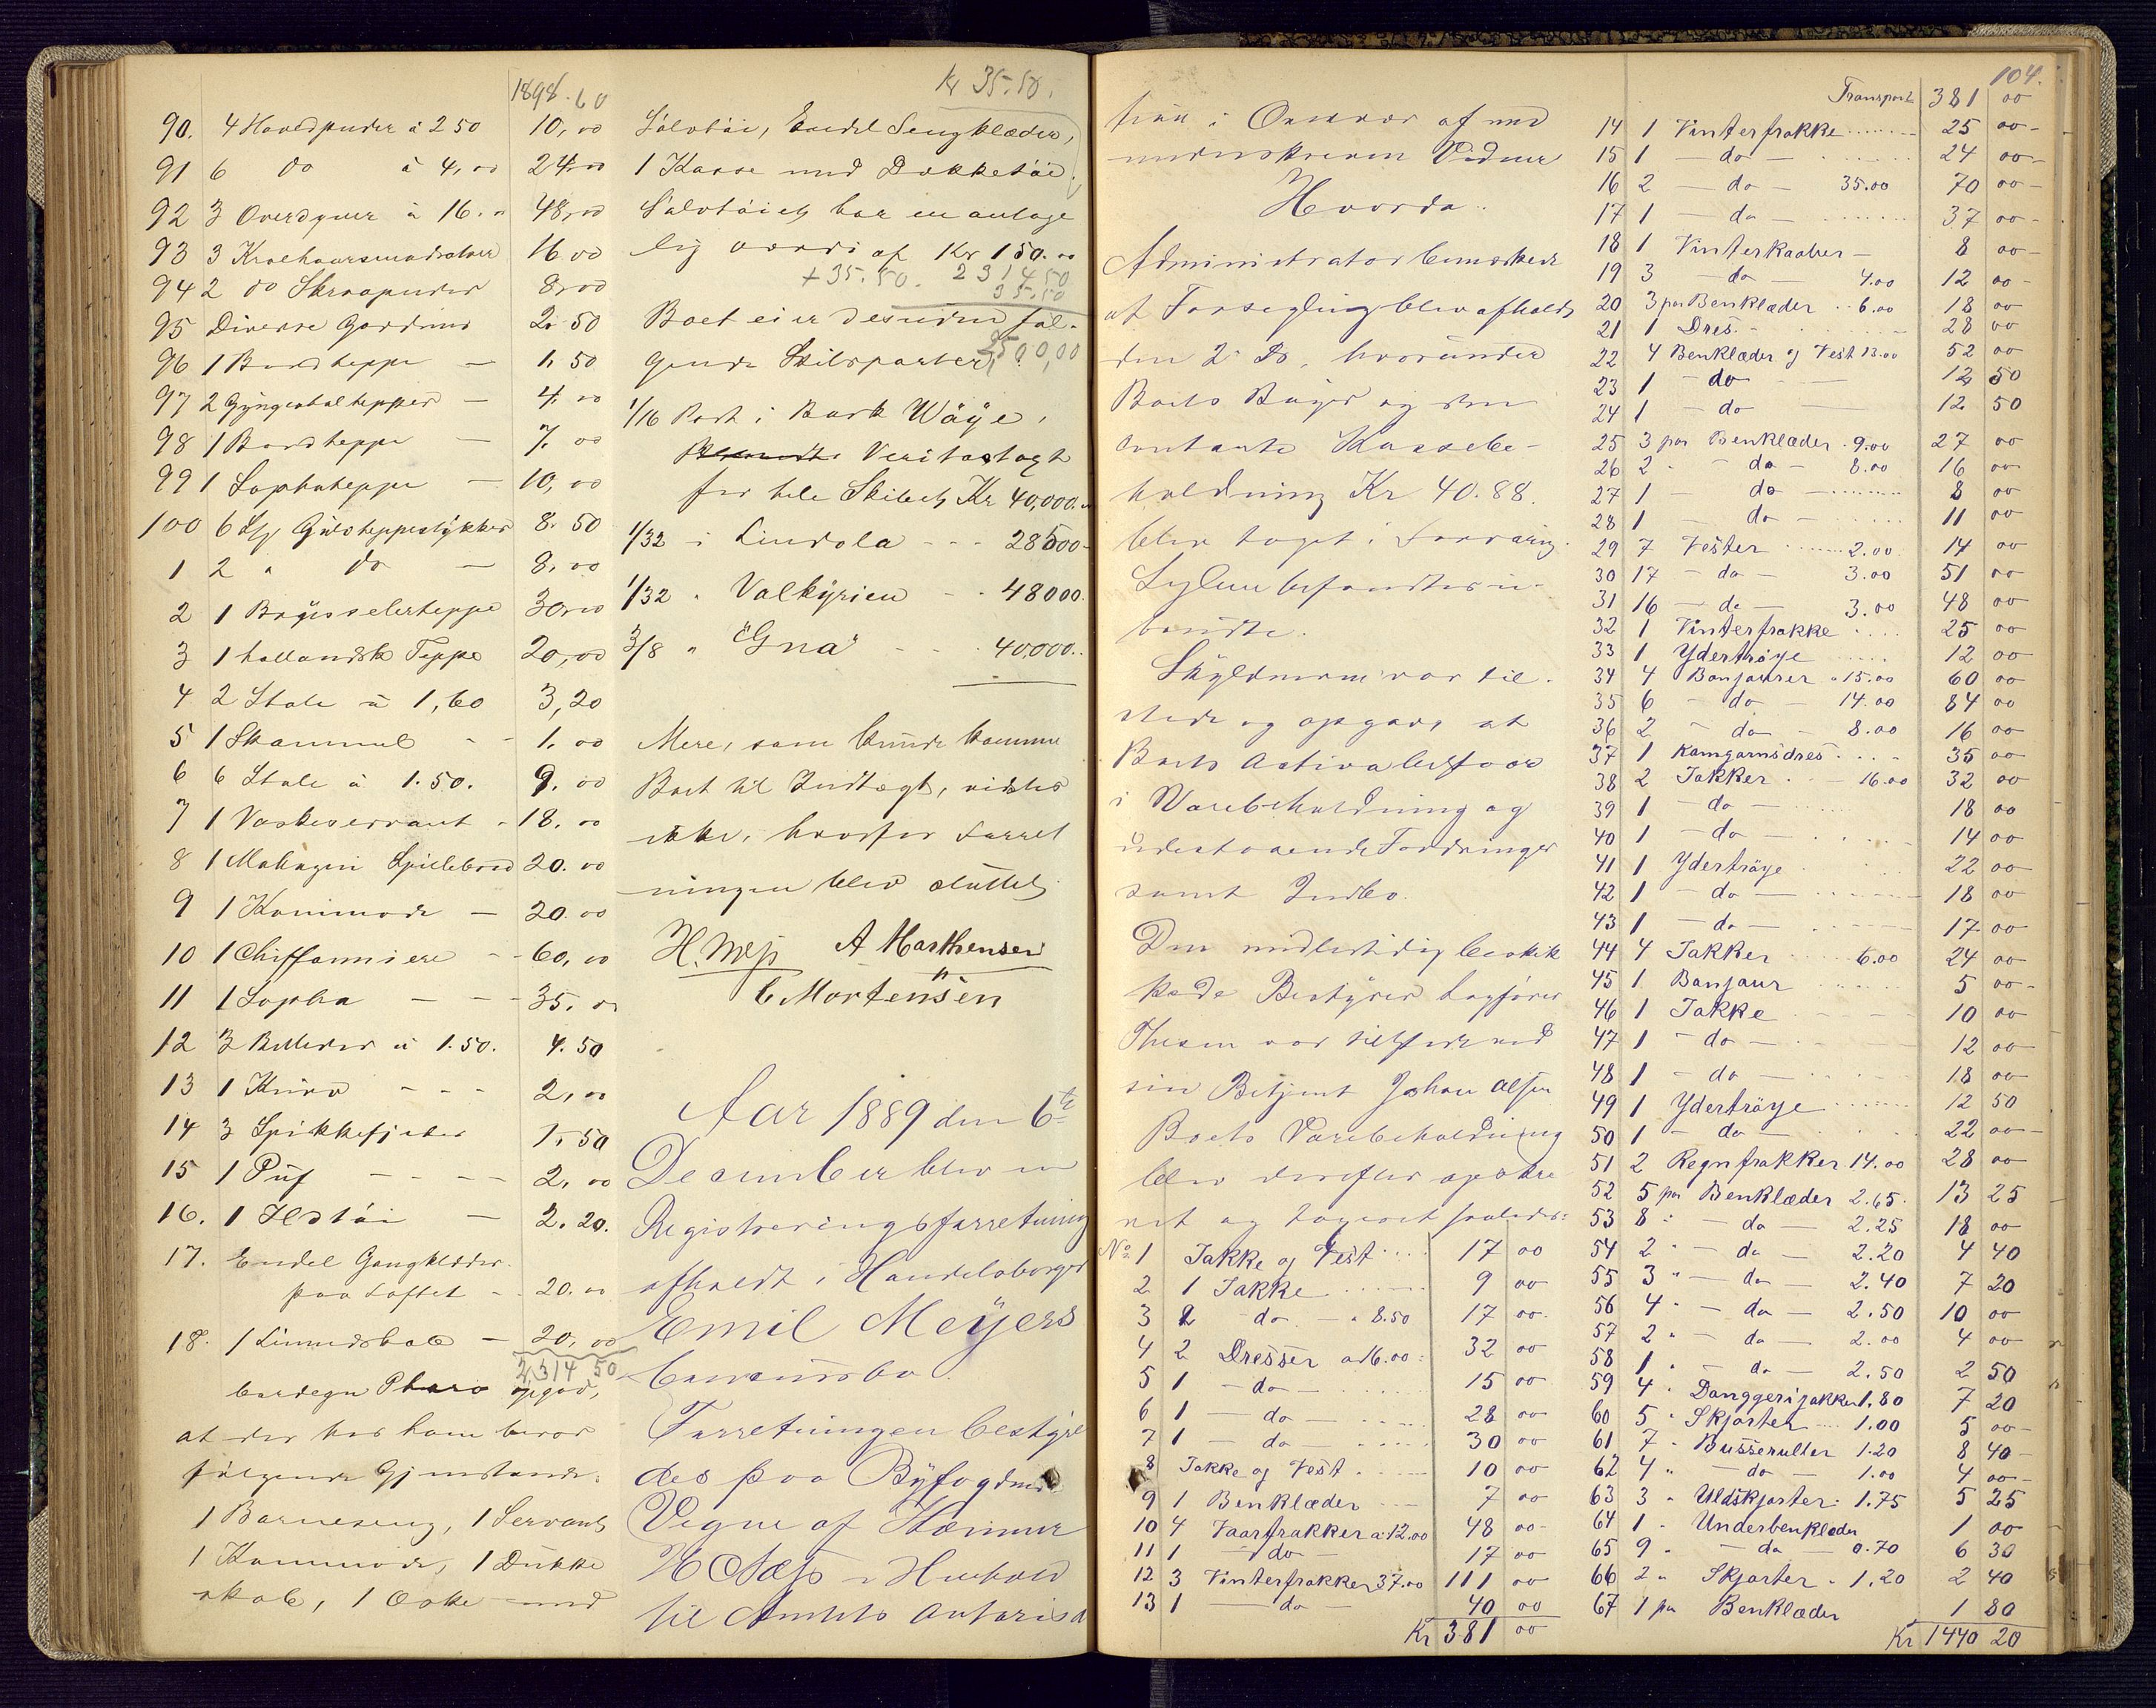 1898.60
90. 4 Hovedpuder à 2 50 10,00
91 6 do à 4,00 24,00
92 3 Overdyner à 16." 48,00
93 3 Krølhaarsmadratser 16.00
94 2 do Skraapuder 8,00
95 Diverse Gardiner 2.50
96 1 Bordteppe — 1.50
97 2 Gyngestoltepper — 4.00
98 1 Bordteppe — 7.00
99 1 Sophateppe — 10,00
100 6 Gulvteppestykker 8.50
1 2 " do — 8.00
2 1 Brysselerteppe 30,00
3 1 hollandsk Teppe 20,00
4 2 Stole à 1,60 3,20
5 1 Skammel - - 1.00
6 6 Stole à 1.50. 9.00
7 1 Vaskeservant - 18.00
8 1 Mahagni Spillebord 20.00
9 1 Kommode — 20.00
10 1 Chiffonniere - - 60,00
11 1 Sopha — — - 35.00
12 3 Billeder à 1.50. 4.50
13 1 Kurv - - - 2,00
14 3 Spikkefjeler 1.50
15 1 Puf - - - - 2,00
16. 1 Ildtøi — 2.20.
17. Endel Gangklæder
paa Loftet - - 20.00
18. 1 Linnedskab — 20,00
2,314 50
opgav,
at der hos ham beror
følgende Gjenstande:
1 Barneseng, 1 Servant
1 Kommode, 1 Dukke
skab, 1 Æske med
Kr 35.50.
Sølvtøi, Endel Sengklæder,
1 Kasse med Dækketøi.
Sølvtøiet har en antage
lig værdi af Kr 150.00
+ 35.50. 2314 50
35.50
Boet eier desuden føl-
gende Skibsparter: 2500,00
1/16 Part i Bark Wøye,
Veritastagt
for hele Skibet Kr 40,000.
1/32 - i Lindola - - - 28500-
1/32 " Valkyrien - - 48000.
3/8 " "Gna" - - - 40,000..
Mere, som kunde komme
Boet til Indtægt, vidstes
ikke, hvorfor Forret
ningen blev sluttet.
H. Næss A Marthensen
C Mortensen
Aar 1889 den 6te
December blev en
Registreringsforretning
afholdt i Handelsborger
Emil Meÿers
Concursbo.
Forretningen bestyre
des paa Byfogdens
Vegne af
H Næss i Henhold
til Amtets Autorisa
104.
tion i Overvær af med
underskrevne Vidner
Hvorda:
Administrator bemærkede
at Forsegling blev afholdt
den 2. ds, hvorunder
Boets Bøger og den
contante Kassebe-
holdning Kr 40.88.
blev taget i Forvaring.
Seglene befandtes u-
brudte.
Skyldneren var til-
stede og opgav, at
Boets Activa bestaar
i Varebeholdning og
udestaaende Fordringer
samt Indbo.
Den midlertidig beskik
kede Bestyrer
var tilstede ved
sin Betjent Johan Olsen
Boets Varebeholdning
blev derefter opskre
vet og taxeret saaledes:
No 1 Jakke og Vest .... 17 00
2 1 Jakke ...... 9 00
3 2 - do - " 8.50 17 00.
4 2 Dresser a 16.00 : 32 00
5 1 - do - 15 00
6 1 — do — ..... 28 00
7 1 — do — .... 30 00
8 Jakke og Vest . ..... 10 00
9 1 Benklæder ---- 7 00
10 4 Vaarfrakker a 12.00 48 00-
11 1 — do — 17 00
12 3 Vinterfrakker 37.00 111 00
13 1 — do — 40 00
Kr 381 00
Transport 381 00
14 1 Vinterfrakke ........ 25 00-
15 1 — do — ...... 24 00-
16 2 — do — 35.00 70 00-
17 1 — do — ....... 37 00-
18 1 Vinterkaaber — 8 00
19 3 — do 4.00 12 00-
20 3 par Benklæder .. 6.00 18 00
21 1 Dres. - ...... 28 00
22 4 Benklæder og Vest 13.00 52 00
23 1 — do — 12 50
24 1 — do — 12 50
25 3 par Benklæder . 9.00 27 00
26 2 " — do — 8.00 16 00
27 1 — do — ....... 8 00
28 1 do — ..... 11 00
29 7 Vester ...... 2.00 14 00
30 17 — do — 3.00 51 00
31 16 — do — 3.00 48 00
32 1 Vinterfrakke .... 25 00
33 1 Ydertrøye ..... 12 00
34 4 Bonjourer " 15.00 60 00
35 6 - do — 14.00 84 00
36 2 - do - 8.00 16 00
37 1 Kamgarnsdres .... 35 00
38 2 Jakker . - 16.00 32 00
39 1 — do — .... 18 00
40 1 — do — ..... 14 00
41 1 Ydertrøye .... 22 00
42 1 — do — ...... 18 00
43 1 — do — ..... 17 00
44 4 Jakker ..... 6.00 24 00
45 1 Bonjour ...... 5 00-
46 1 Jakke ..... 10 00
47 1 — do — ..... 12 00
48 1 — do — ..... 18 00
49 1 Ydertrøye ...... 12 50
50 1 — do — ..... 22 00
51 2 Regnfrakker 14.00 28 00
52 5 par Benklæder 2.65. 13 25
53 8 " — do — 2.25 18 00
54 2 " — do — 2.20 4 40
55 3 " — do — 2.40 7 20
56 4 " — do — 2.50 10 00
57 2 " — do — 2.00 4 00
58 1 " — do — 2.50 2 50
59 4 " Danggerijakker 1.80 7 20
60 5 " Skjorter .... 1.00 5 00-
61 7 " Busseruller 1.20 8 40-
62 4 " — do — 1.00 4 00-
63 3 " Uldskjorter. 1.75 5 25
64 1 " Underbenklæder 1 00
65 9 " — do — 0.70 6 30
66 2 " Skjorter " 1.20 2 40
67 1 par Benklæder 1 80
Kr 1440 20